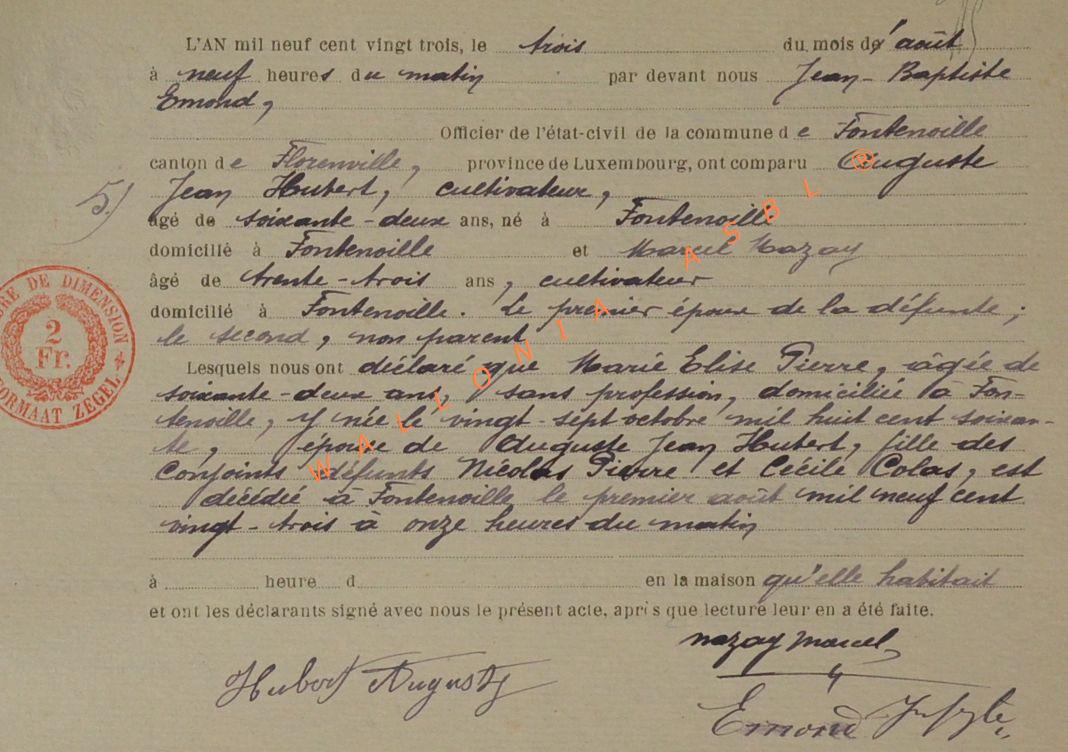 L'AN mil neuf cent vingt trois, le trois du mois d'août
à neuf heures du matin par devant nous Jean-Baptiste
Emond,
Officier de l'état-civil de la commune de Fontenoille
canton de Florenville, province de Luxembourg, ont comparu Auguste
5)
Jean Hubert, cultivateur,
âgé de soixante-deux ans, né à Fontenoille
domicilié à Fontenoille et Marcel Nazay
âgé de trente-trois ans, cultivateur
domicilié à Fontenoille. Le premier époux de la défunte;
le second, non parent
Lesquels nous ont déclaré que Marie Elise Pierre, âgée de
soixante-deux ans, sans profession, domiciliée à Fon-
tenoille, y née le vingt-sept octobre mil huit cent soixan-
te, épouse de Auguste Jean Hubert, fille des
conjoints défunts Nicolas Pierre et Cécile Colas, est
décédée à Fontenoille le premier août mil neuf cent
vingt-trois à onze heures du matin
à heure d en la maison qu'elle habitait
et ont les déclarants signé avec nous le présent acte, après que lecture leur en a été faite.
Nazay Marcel
Hubert Auguste
Emond
BRE DE DIMENSION
2
Fr.
FORMAAT ZEGEL
WALLONIA ASBL ®